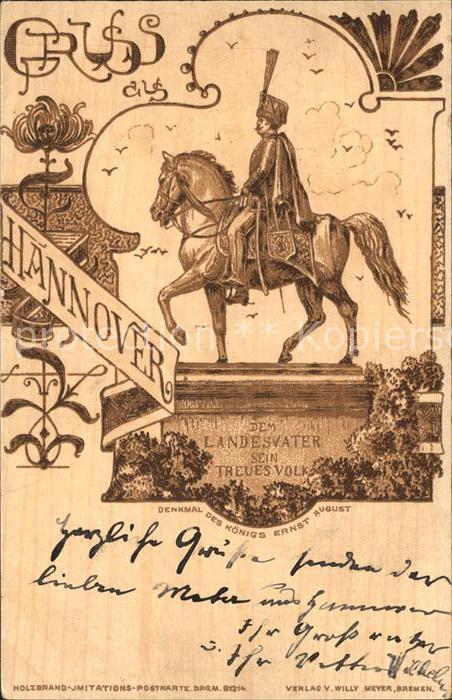 GRUSS
aus
HANNOVER
DEM
LANDESVATER
SEIN
TREUES VOLK
DENKMAL DES KÖNIGS ERNST AUGUST
Herzliche Grüße senden der
lieben aus Hannover
Ihr Großvater
u. Ihr Vetter Wilhelm
HOLZBRAND-IMITATIONS-POSTKARTE. D.R.G.M. 81314.
VERLAG V. WILLY MEYER, BREMEN.
protection ** Kopiersc